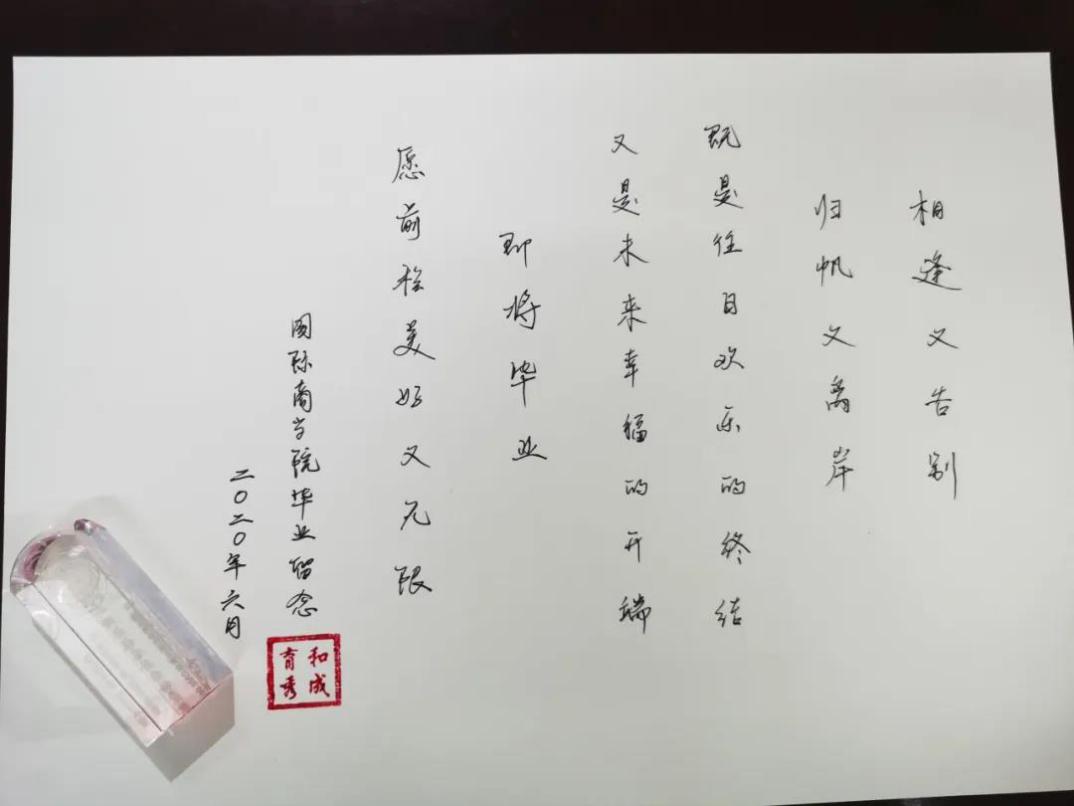 相逢又告别
归帆又离岸
既是往日欢乐的终结
又是未来幸福的开端
即将毕业
愿前程美好又无限
国际商学院毕业留念
二〇二〇年六月
和成
育秀